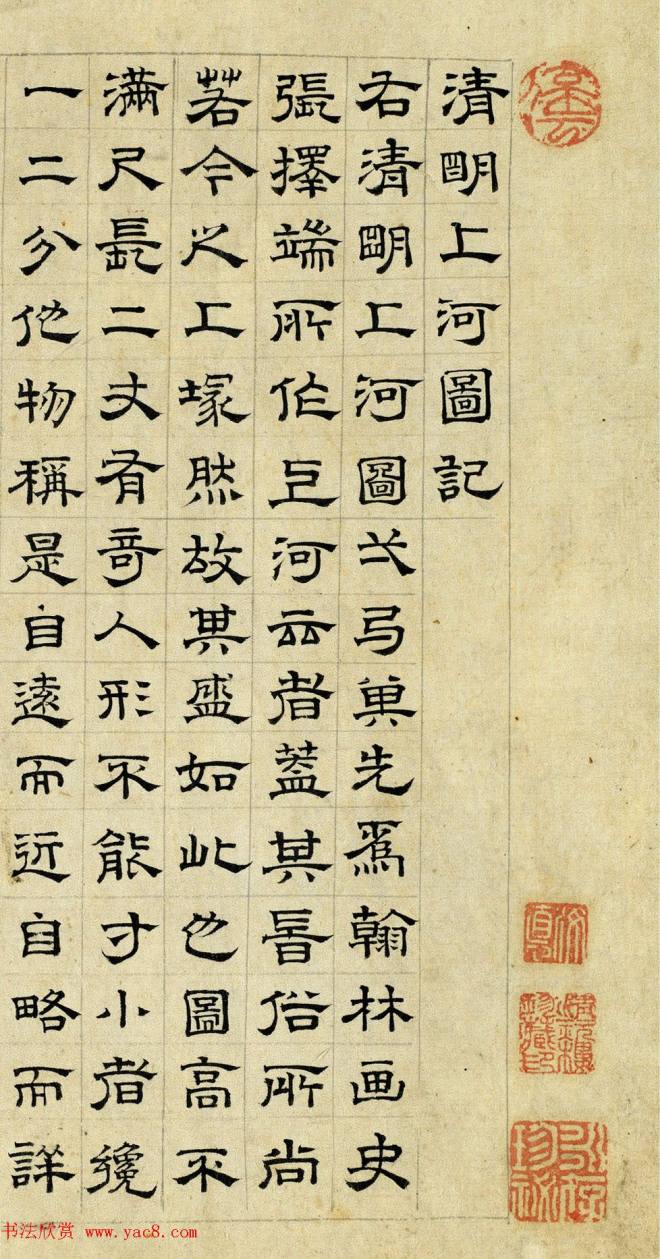 清朙上河圖記
右清朙上河圖弌弓先爲翰林画史
張擇端所作上河云者蓋其旹俗所尚
若今之上塚然故其盛如此也圖高不
滿尺長二丈有奇人形不能寸小者纔
一二分他物稱是自遠而近自略而詳
书法欣赏 www.yac8.com